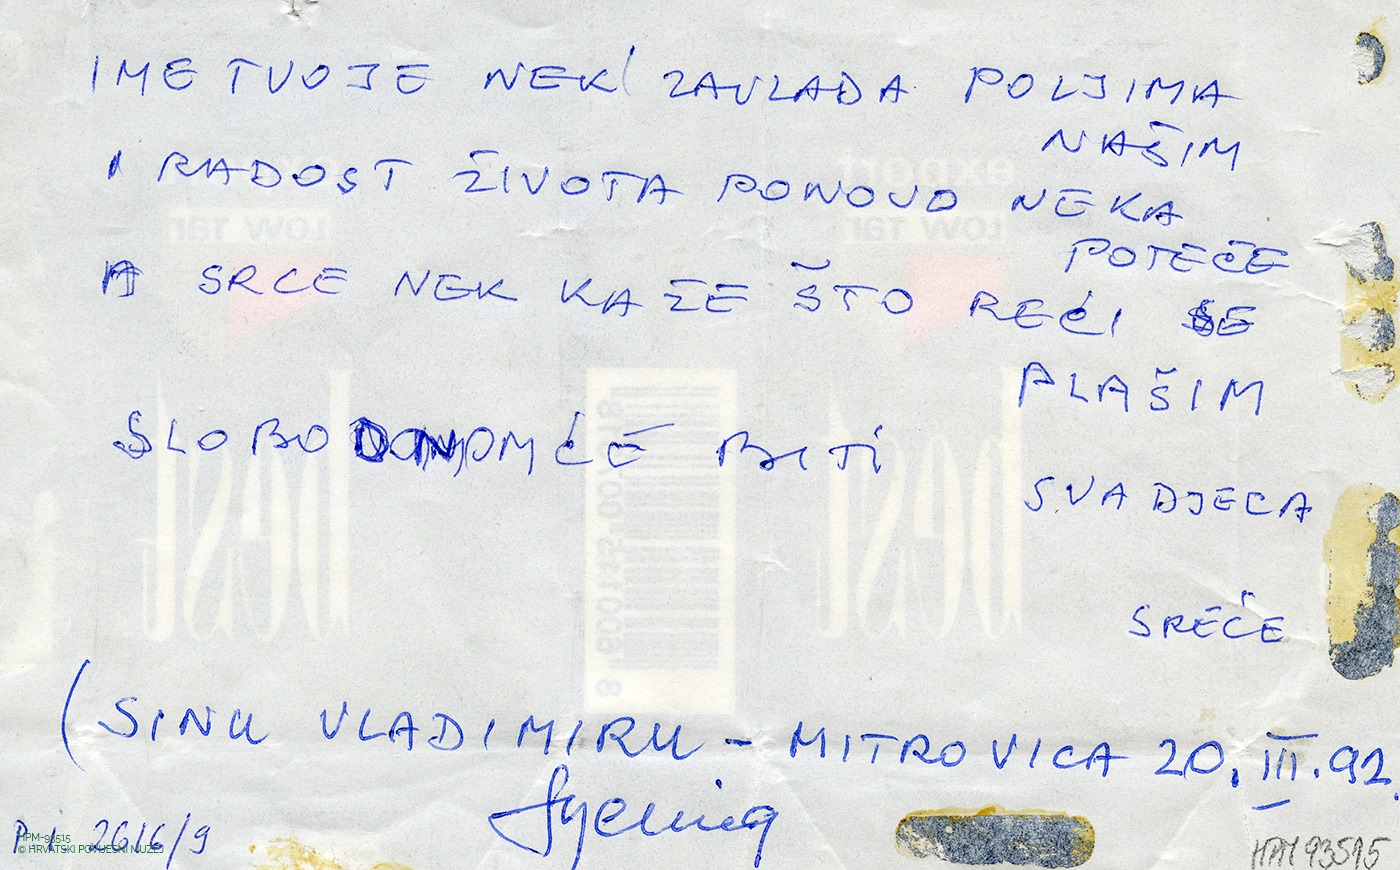 IME TVOJE NEK ZAVLADA POLJIMA
NAŠIM
I RADOST ŽIVOTA PONOVO NEKA
POTEČE
A SRCE NEK KAŽE ŠTO REĆI SE
PLAŠIM
SLOBODNOM ĆE BITI
SVA DJECA
SREĆE
(SINU VLADIMIRU - MITROVICA 20. III. 92.
P i 26/6/9
HPM-93515
© HRVATSKI POVIJESNI MUZEJ
HPM 93515
export
LOW TAR
LOW TAR
best
best